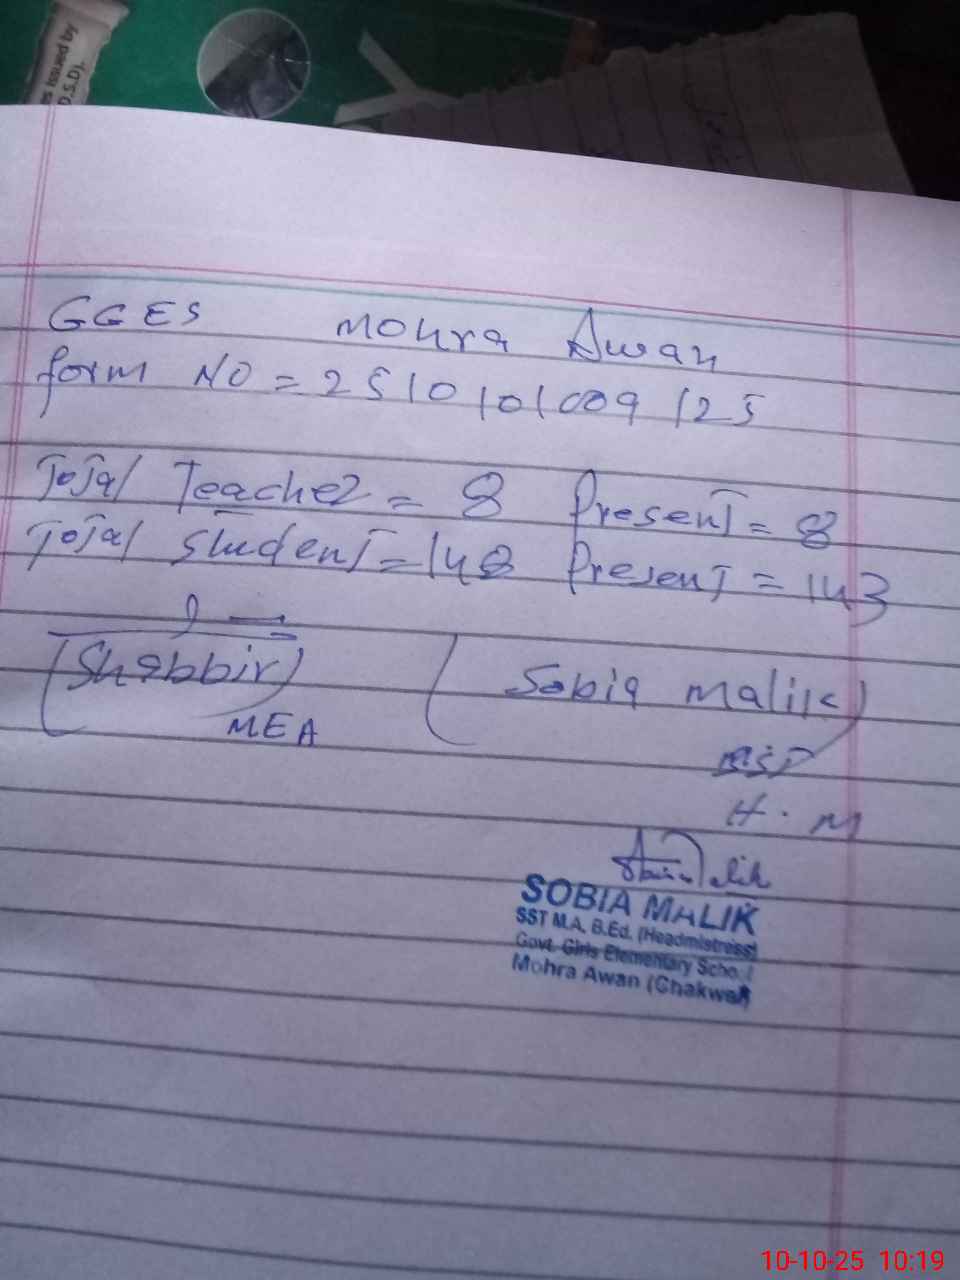 es issued by
D.S.D).
GGES Mohra Awan
form NO = 2510101009125
Total Teacher = 8 Present = 8
Total student = 148 Present = 143
(Shabbir) (Sobia malik)
MEA
H.M
SOBIA MALIK
SST M.A. B.Ed. (Headmistress)
Govt. Girls Elementary School
Mohra Awan (Chakwal)
10-10-25 10:19